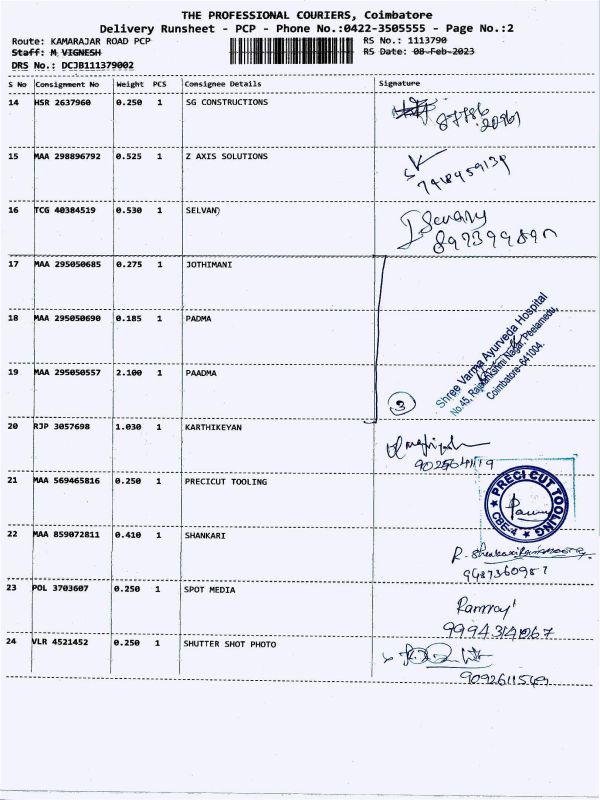 THE PROFESSIONAL COURIERS, Coimbatore
Delivery Runsheet - PCP - Phone No.:0422-3505555 - Page No.:2
Route: KAMARAJAR ROAD PCP RS No.: 1113790
Staff: M VIGNESH RS Date: 08-Feb-2023
DRS No.: DCJB111379002
S No Consignment No Weight PCS Consignee Details Signature
14 HSR 2637960 0.250 1 SG CONSTRUCTIONS
87786
20961
15 MAA 298896792 0.525 1 Z AXIS SOLUTIONS
16 TCG 40384519 0.530 1 SELVAN)
17 MAA 295050685 0.275 1 JOTHIMANI
18 MAA 295050690 0.185 1 PADMA
19 MAA 295050557 2.100 1 PAADMA
3
Shree Varma Ayurveda Hospital
No.45, Rajalakshmi Nagar, Peelamedu,
Coimbatore-641004.
20 RJP 3057698 1.030 1 KARTHIKEYAN
21 MAA 569465816 0.250 1 PRECICUT TOOLING
PRECI CUT TOOLING
CBE-4
22 MAA 859072811 0.410 1 SHANKARI
23 POL 3703607 0.250 1 SPOT MEDIA
24 VLR 4521452 0.250 1 SHUTTER SHOT PHOTO
9092611549